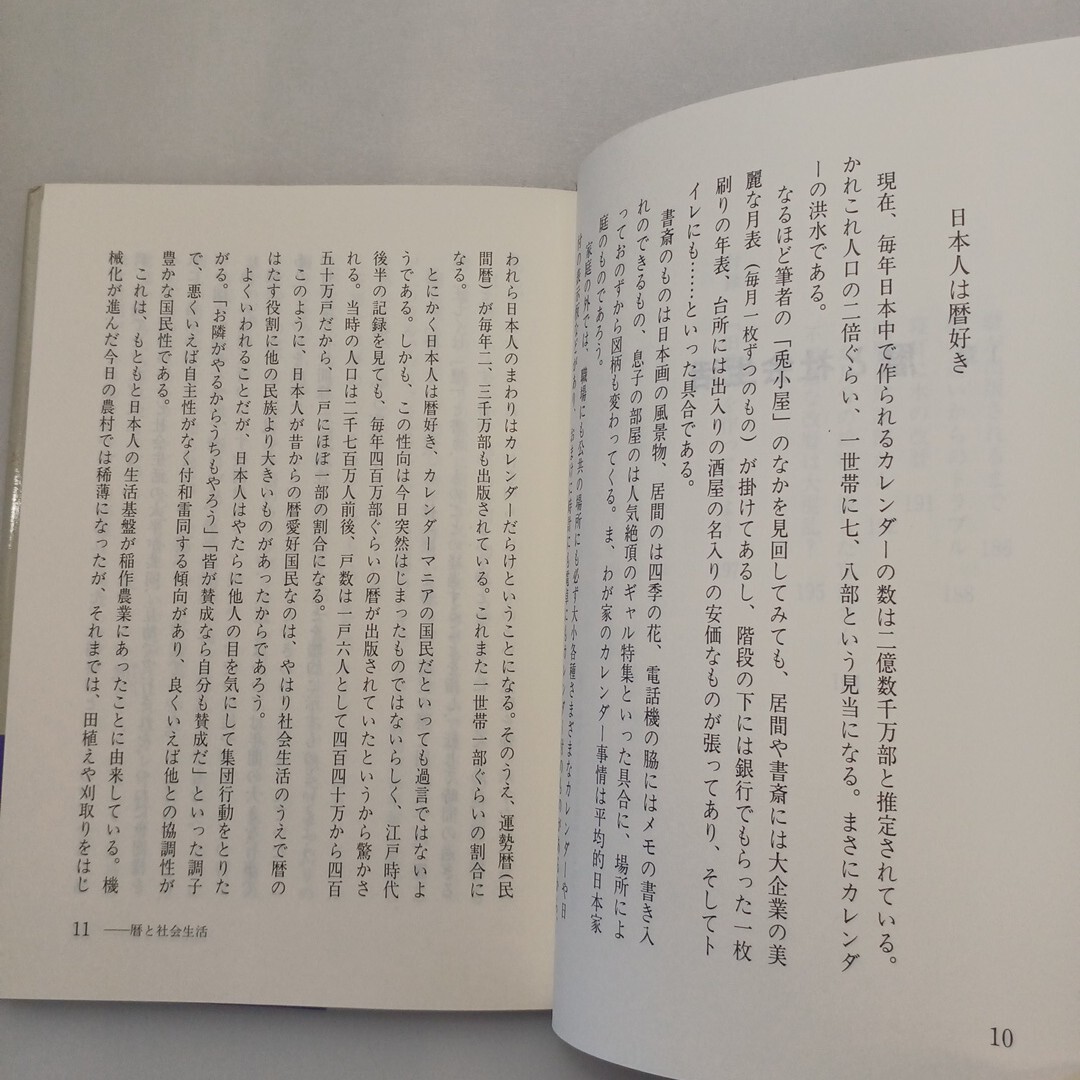 日本人は暦好き
現在、毎年日本中で作られるカレンダーの数は二億数千万部と推定されている。
かれこれ人口の二倍ぐらい、一世帯に七、八部という見当になる。まさにカレンダ
ーの洪水である。
なるほど筆者の「兎小屋」のなかを見回してみても、居間や書斎には大企業の美
麗な月表（毎月一枚ずつのもの）が掛けてあるし、階段の下には銀行でもらった一枚
刷りの年表、台所には出入りの酒屋の名入りの安価なものが張ってあり、そしてト
イレにも……といった具合である。
書斎のものは日本画の風景物、居間のは四季の花、電話機の脇にはメモの書き入
れのできるもの、息子の部屋のは人気絶頂のギャル特集といった具合に、場所によ
っておのずから図柄も変わってくる。ま、わが家のカレンダー事情は平均的日本家
庭のものであろう。
家庭の外では、職場にも公共の場所にも必ず大小各種さまざまなカレンダーや日
10
われら日本人のまわりはカレンダーだらけということになる。そのうえ、運勢暦（民
間暦）が毎年二、三千万部も出版されている。これまた一世帯一部ぐらいの割合に
なる。
とにかく日本人は暦好き、カレンダーマニアの国民だといっても過言ではないよ
うである。しかも、この性向は今日突然はじまったものではないらしく、江戸時代
後半の記録を見ても、毎年四百万部ぐらいの暦が出版されていたというから驚かさ
れる。当時の人口は二千七百万人前後、戸数は一戸六人として四百四十万から四百
五十万戸だから、一戸にほぼ一部の割合になる。
このように、日本人が昔からの暦愛好国民なのは、やはり社会生活のうえで暦の
はたす役割に他の民族より大きいものがあったからであろう。
よくいわれることだが、日本人はやたらに他人の目を気にして集団行動をとりた
がる。「お隣がやるからうちもやろう」「皆が賛成なら自分も賛成だ」といった調子
で、悪くいえば自主性がなく付和雷同する傾向があり、良くいえば他との協調性が
豊かな国民性である。
これは、もともと日本人の生活基盤が稲作農業にあったことに由来している。機
械化が進んだ今日の農村では稀薄になったが、それまでは、田植えや刈取りをはじ
11 ──暦と社会生活